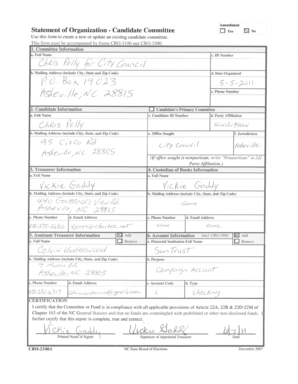 Amendment
Statement of Organization - Candidate Committee
Yes No
Use this form to create a new or update an existing candidate committee.
This form must be accompanied by forms CRO-3100 and CRO-3500.
1. Committee Information
a. Full Name
c. ID Number
Chris Pelly for City Council
b. Mailing Address (include City, State and Zip Code)
d. Date Organized
P.O. Box 19023
5-5-2011
Asheville, NC 28815
e. Phone Number
2. Candidate Information
Candidate's Primary Committee
a. Full Name
c. Candidate ID Number
f. Party Affiliation
Chris Pelly
b. Mailing Address (include City, State and Zip Code)
e. Office Sought
f. Jurisdiction
95 Cisco Rd
City Council
Asheville, NC 28805
(If office sought is nonpartisan, write "Nonpartisan" in [f] Party Affiliation.)
3. Treasurer Information
4. Custodian of Books Information
a. Full Name
a. Full Name
Vickie Gaddy
Vickie Gaddy
b. Mailing Address (include City, State and Zip Code)
b. Mailing Address (include City, State and Zip Code)
Governors View Rd
same
Asheville, NC
c. Phone Number
d. Email Address
c. Phone Number
d. Email Address
same
same
5. Assistant Treasurer Information
Add
6. Account Information
Add
a. Full Name
Remove
a. Financial Institution Full Name
Remove
SunTrust
b. Mailing Address (include City, State and Zip Code)
b. Purpose
Campaign Account
Asheville, NC 28805
c. Phone Number
d. Email Address
c. Account Code
d. Type
1
Checking
CERTIFICATION
I certify that the Committee or Fund is in compliance with all applicable provisions of Article 22A, 22B & 22D-22M of
Chapter 163 of the NC General Statutes and that no funds are commingled with prohibited or other non-disclosed funds. I
further certify that this report is complete, true and correct.
Vickie Gaddy
Printed Name of Signer
Signature of Appointed Treasurer
Date
CRO-2100A
NC State Board of Elections
December 2007